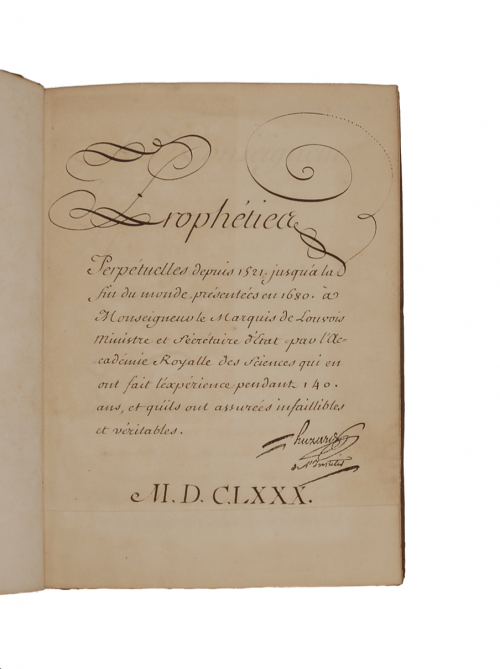 Prophéties
Perpétuelles depuis 1521. jusqu'à la
fin du monde présentées en 1680. à
Monseigneur le Marquis de Louvois
Ministre et Sécrétaire d'Etat par l'Ac-
cadémie Royalle des Sciences qui en
ont fait l'éxpérience pendant 140.
ans, et qu'ils ont assurées infaillibles
et véritables.
huzard
de l'Institut
M.D.CLXXX.